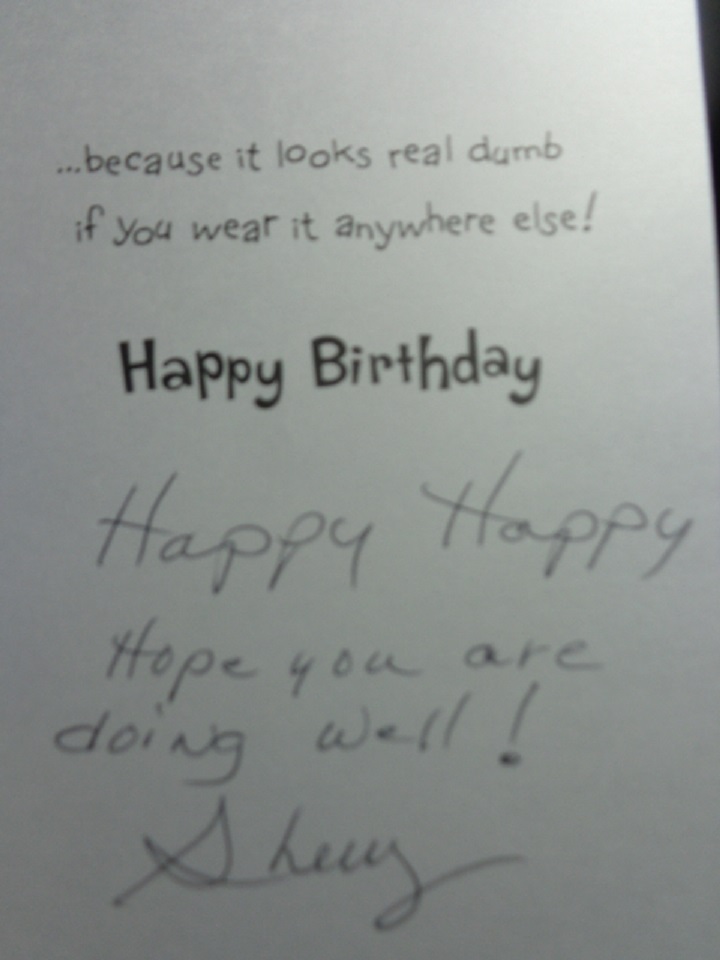 ...because it looks real dumb
if you wear it anywhere else!
Happy Birthday
Happy Happy
Hope you are
doing well!
Sherry